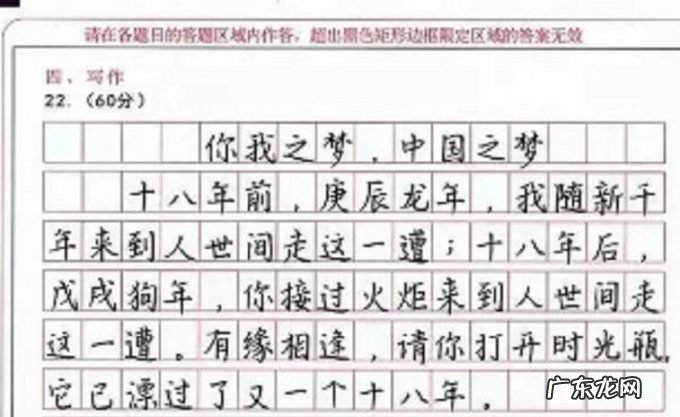 请在各题目的答题区域内作答，超出黑色矩形边框限定区域的答案无效
四、写作
22.（60分）
你我之梦，中国之梦
十八年前，庚辰龙年，我随新千
年来到人世间走这一遭；十八年后，
戊戌狗年，你接过火炬来到人世间走
这一遭。有缘相逢，请你打开时光瓶，
它已漂过了又一个十八年。
广东龙网